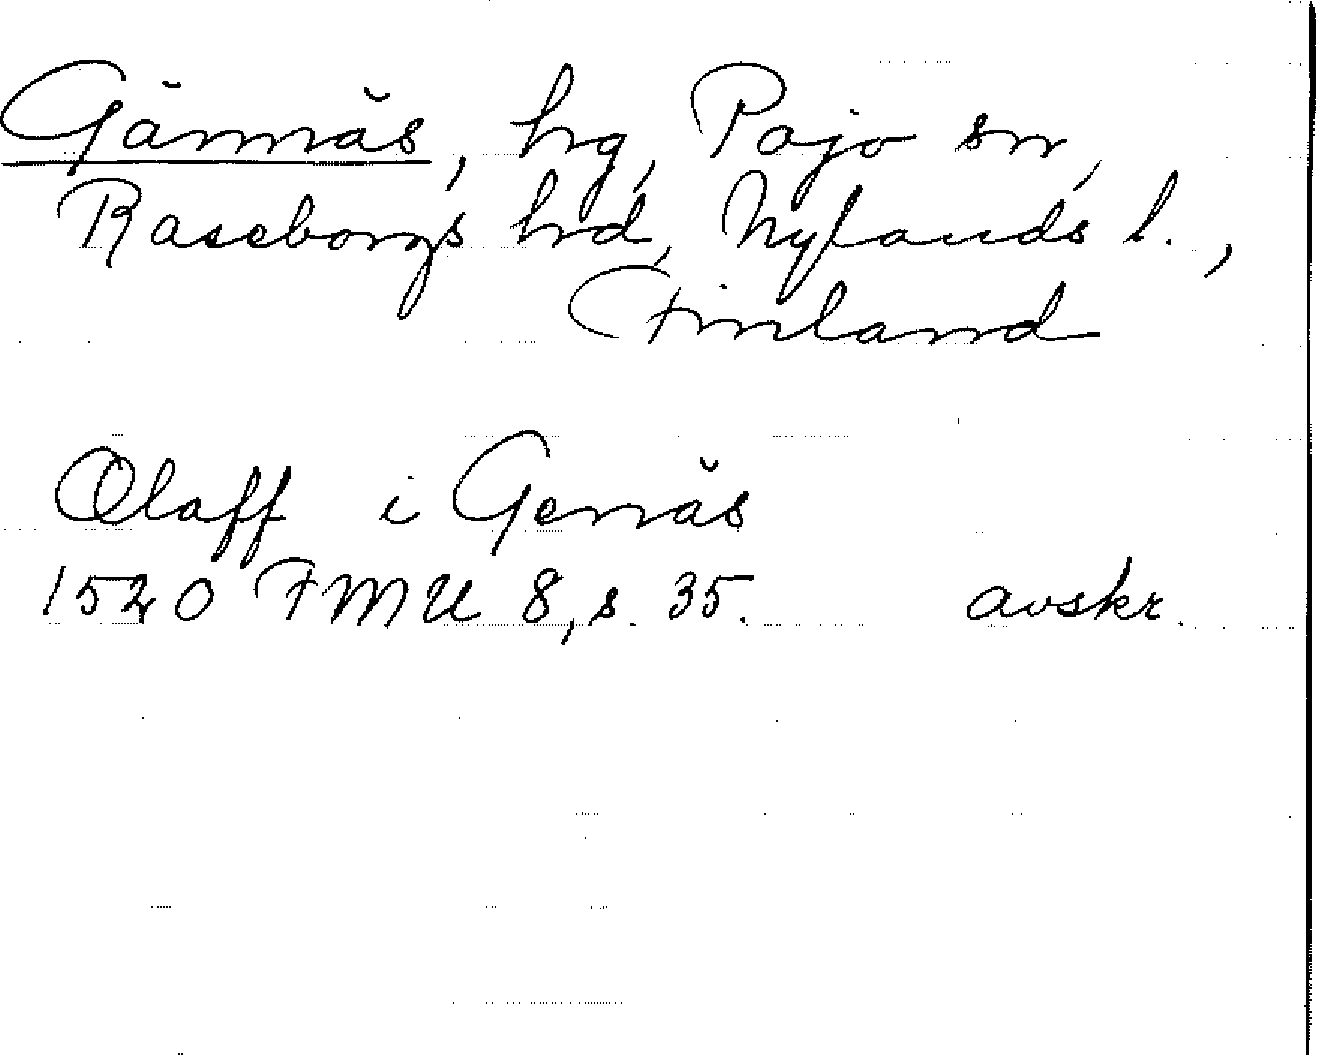 Gännäs, hg, Pojo sn,
Raseborgs hrd, Nylands l.,
Finland
Olaff i Genäs
1520 FMU 8, s. 35. avskr.